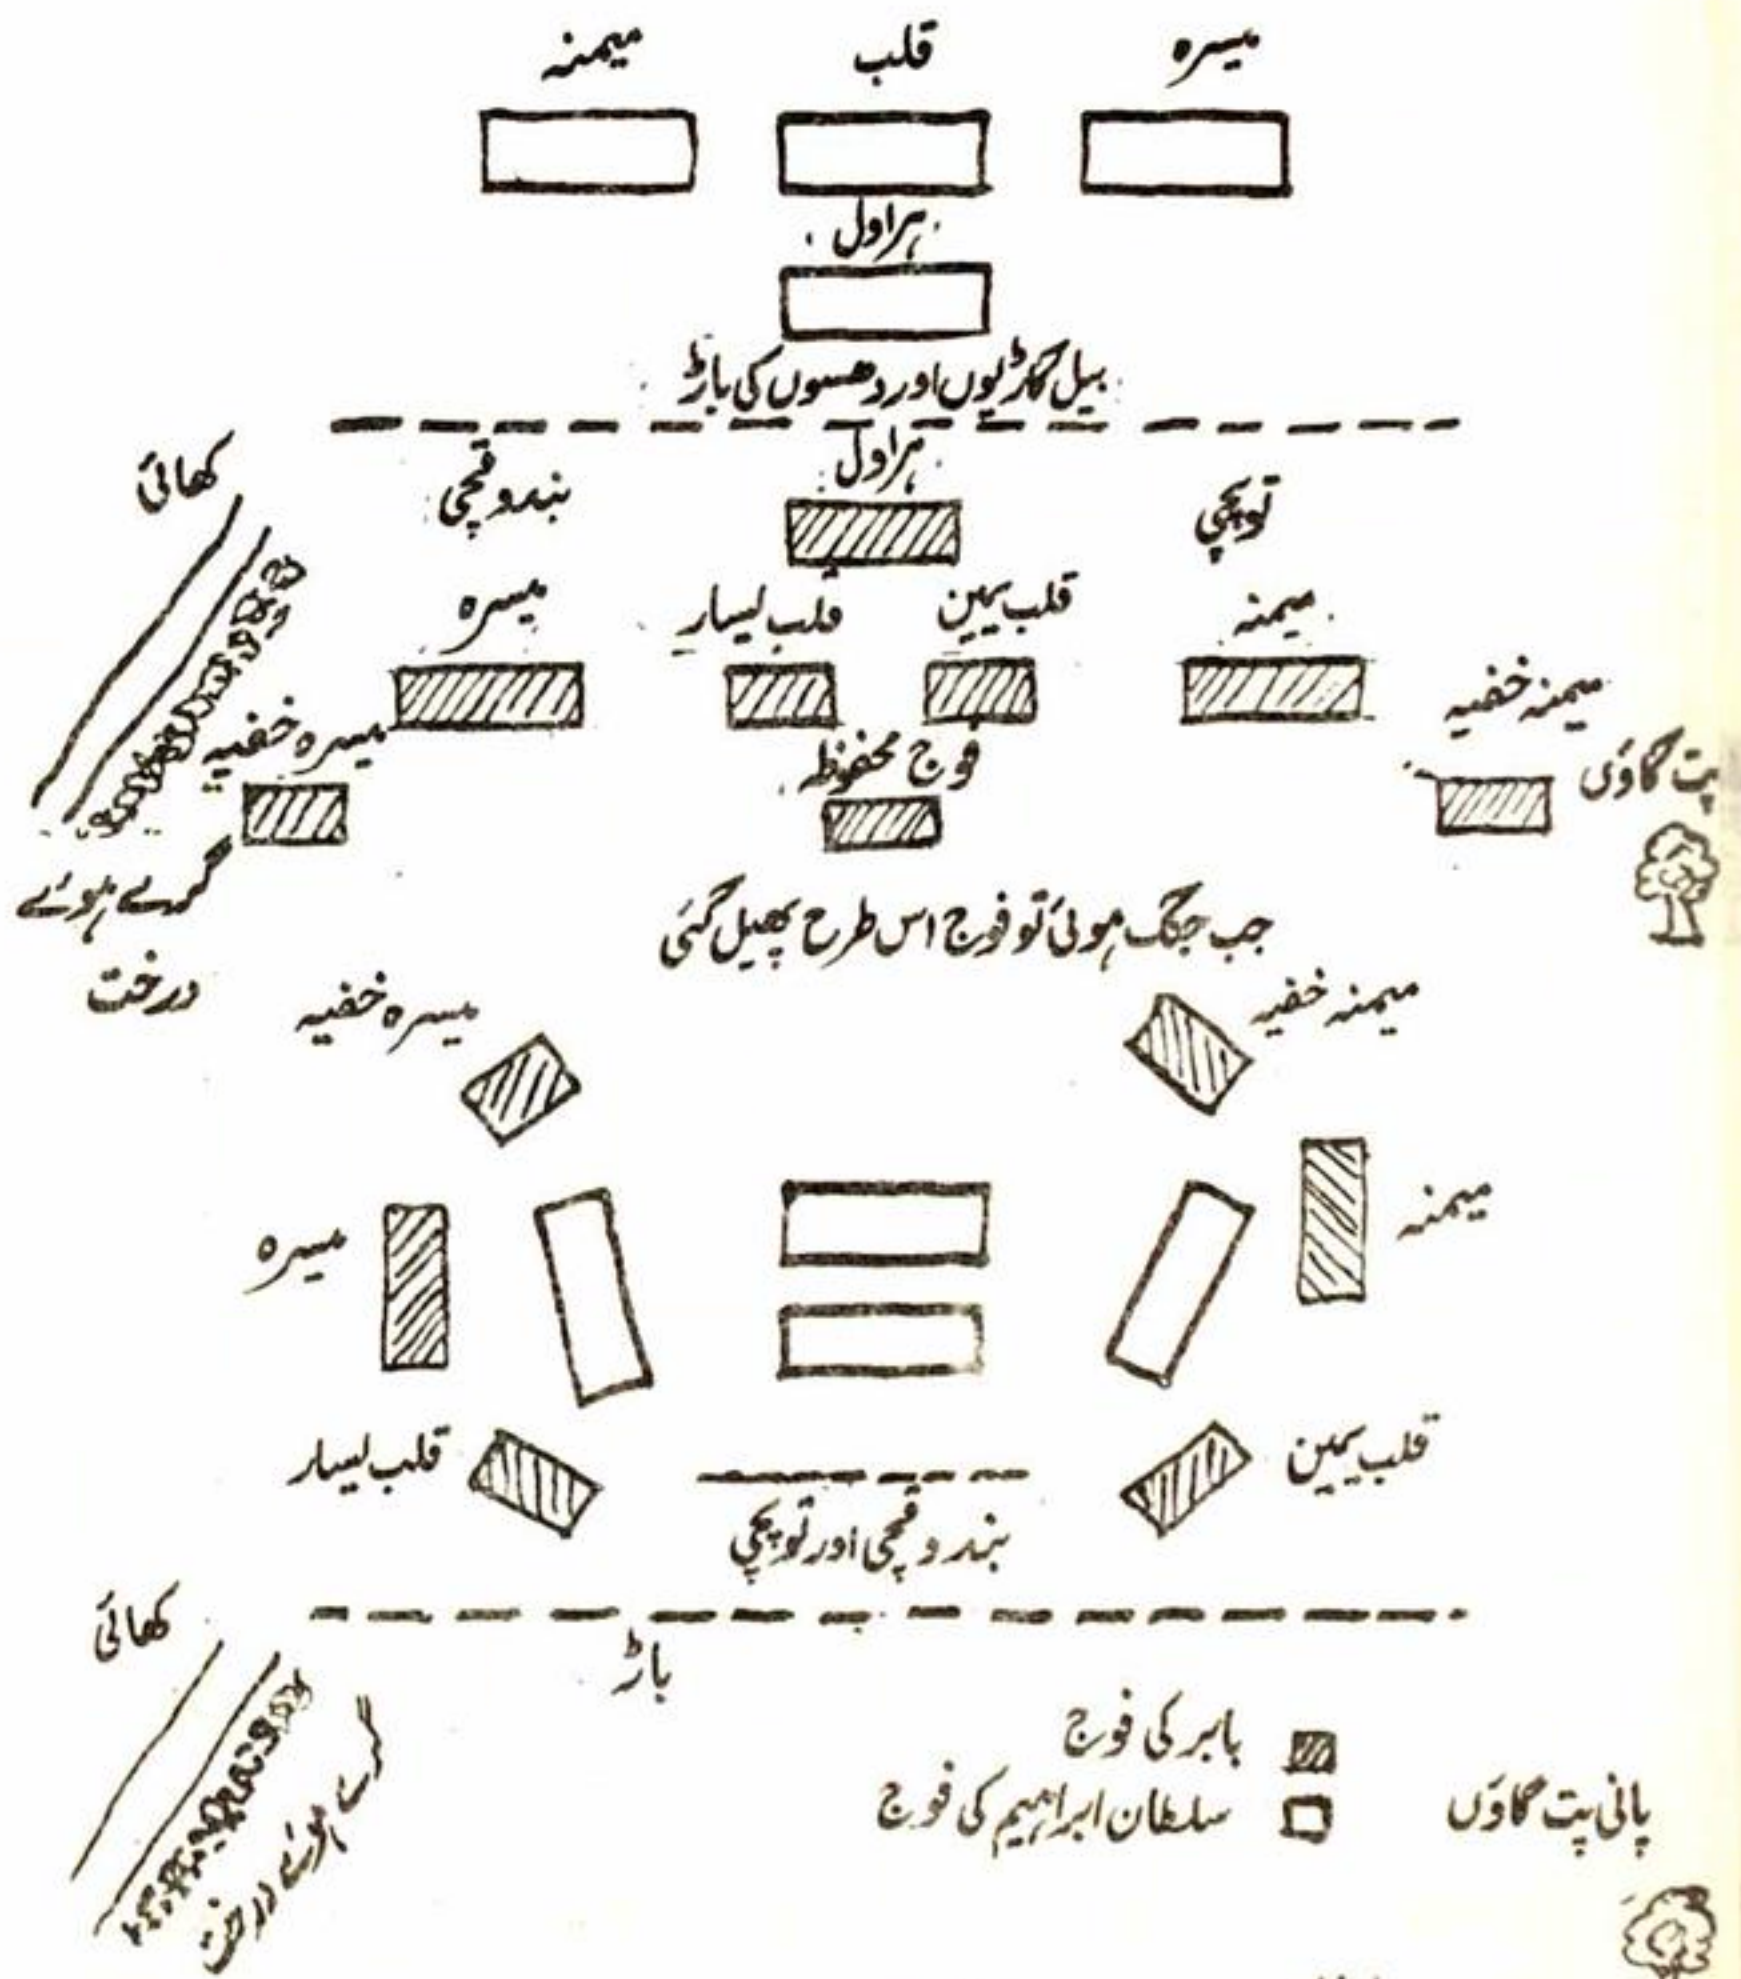 میسرہ قلب میمنہ
ہراول
بیل گاڑیوں اور دھسوں کی باڑ
ہراول
کھائی
توپچی بندوقچی
میمنہ قلب یمین قلب یسار میسرہ
میمنہ خفیہ
میسرہ خفیہ
فوج محفوظ
پت گاؤں
گرے ہوئے
درخت
جب جنگ ہوئی تو فوج اس طرح پھیل گئی
میمنہ خفیہ میسرہ خفیہ
میمنہ میسرہ
قلب یمین قلب یسار
بندوقچی اور توپچی
کھائی
باڑ
گرے ہوئے درخت
بابر کی فوج
سلطان ابراہیم کی فوج
پانی پت گاؤں